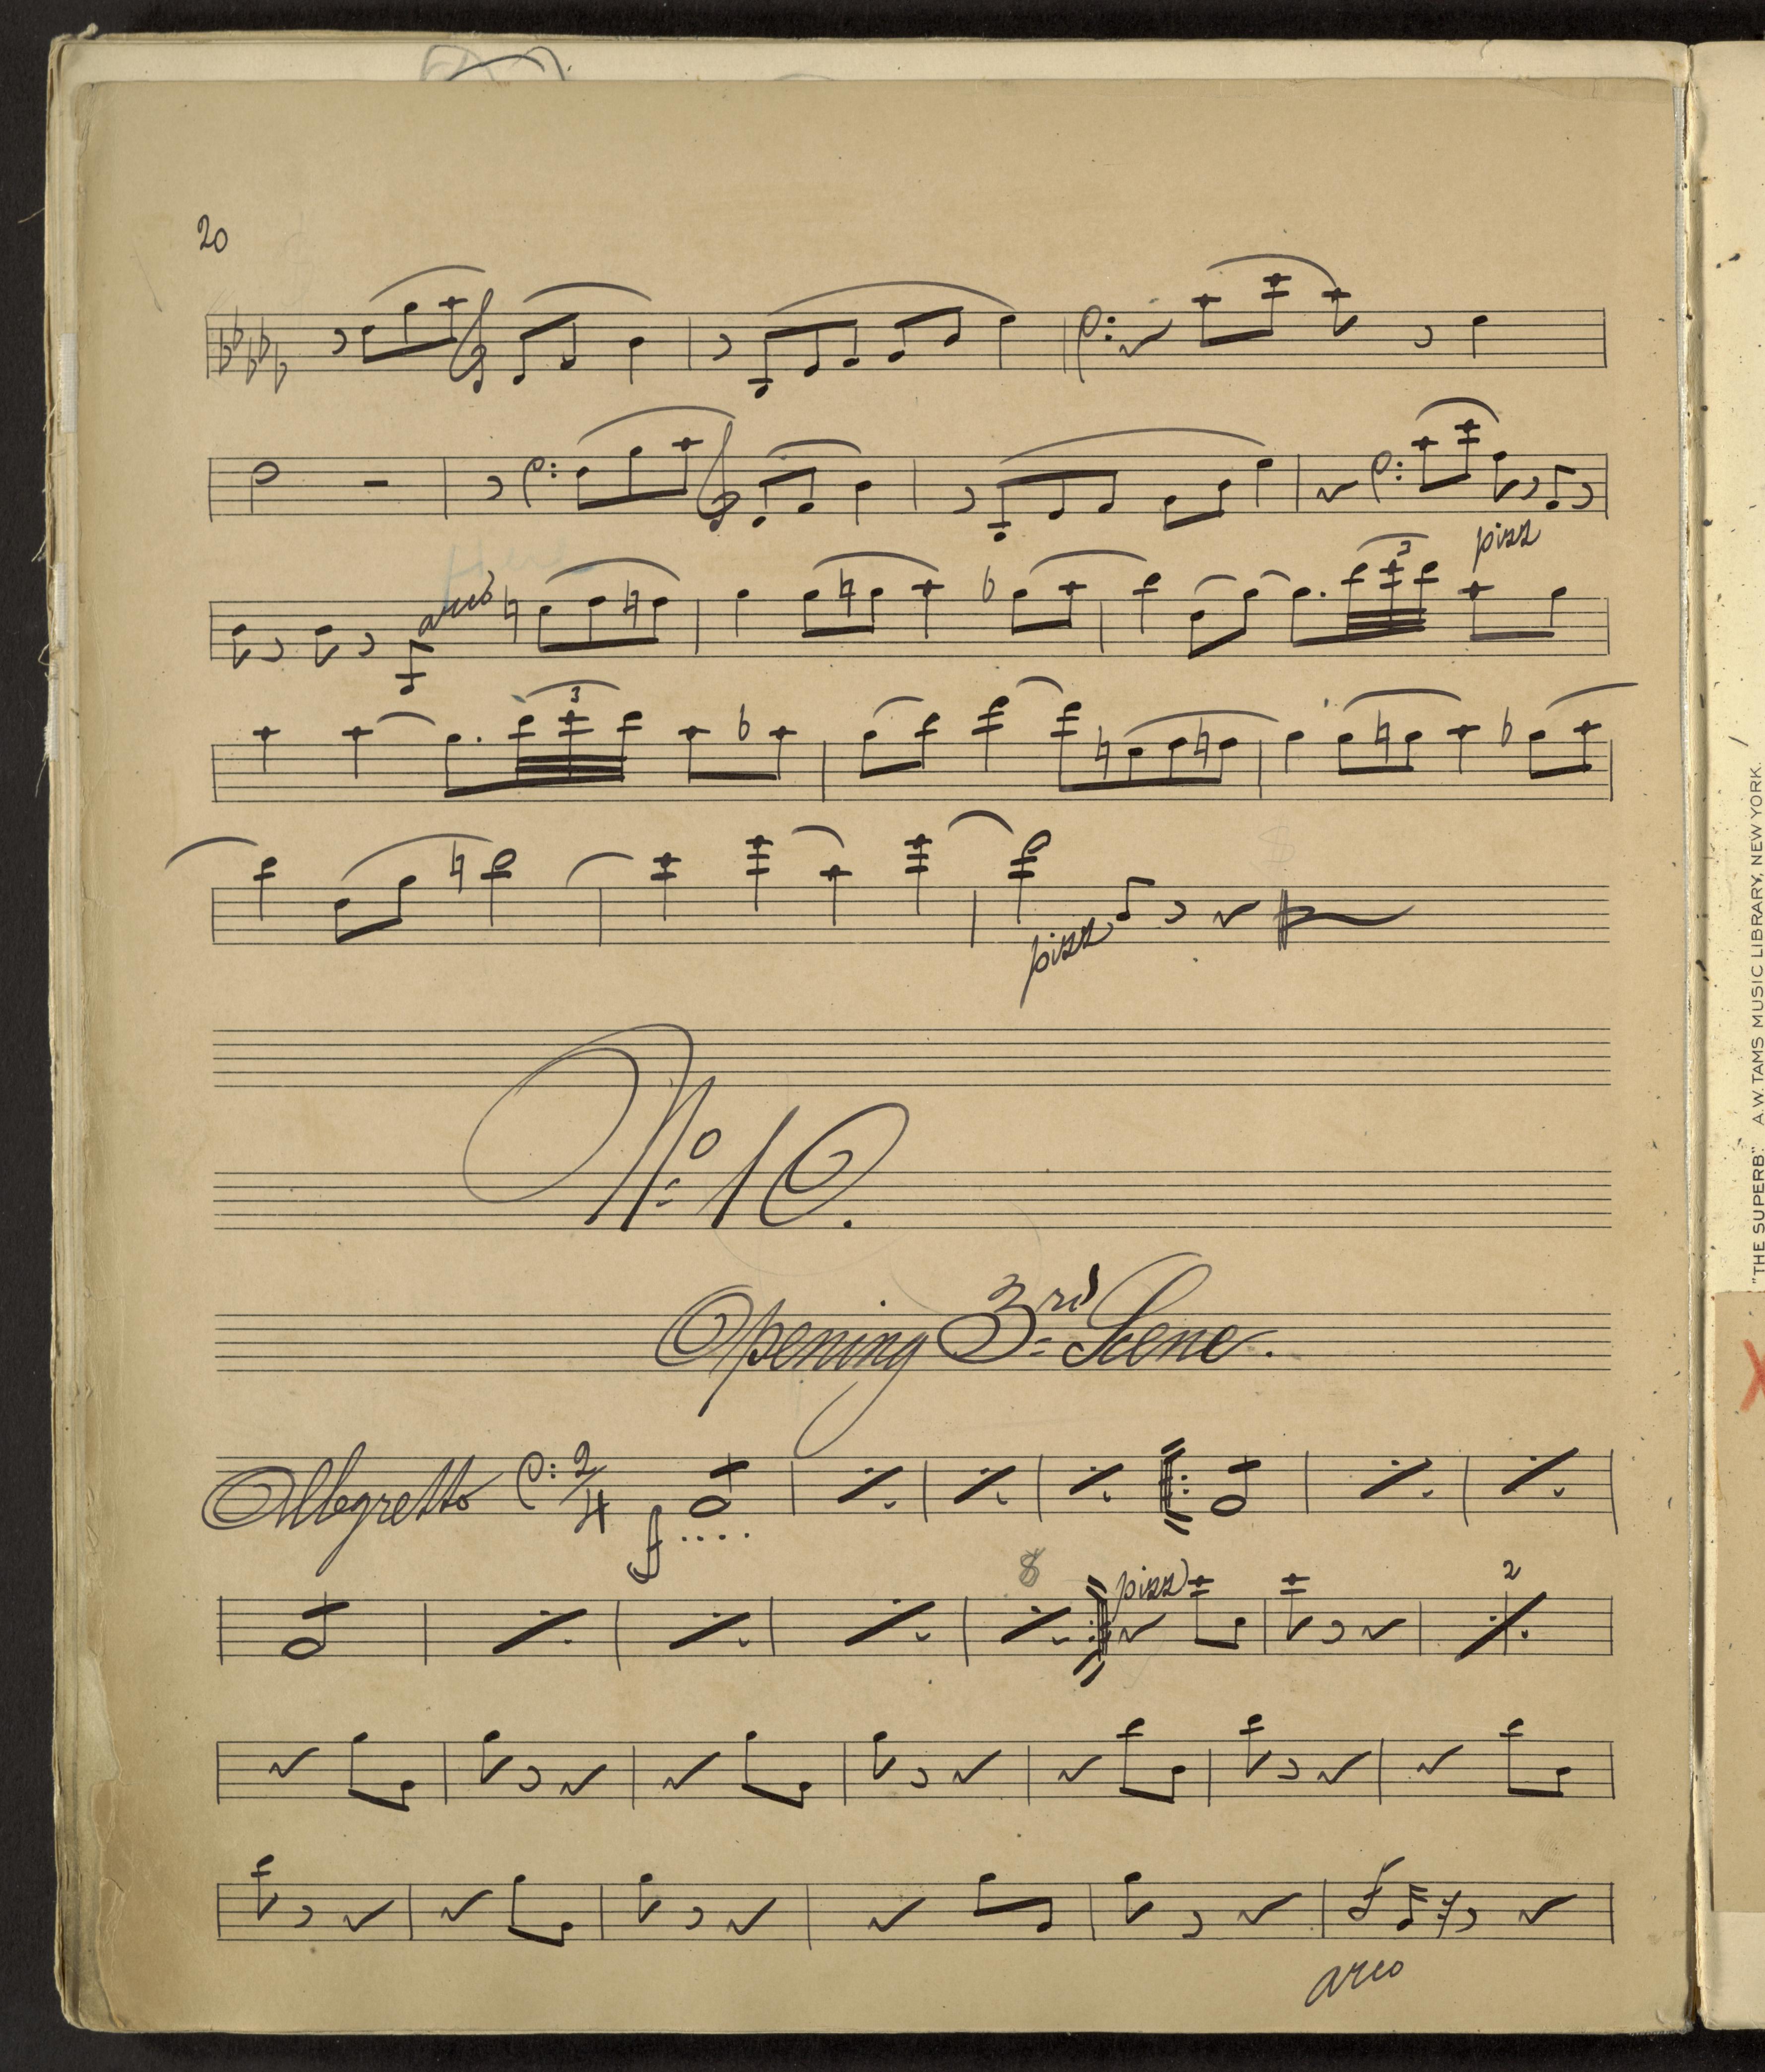 20
pizz
3
arco
3
pizz
No. 10.
Opening 3rd Scene.
Allegretto 2/4
f
pizz 2
arco
"THE SUPERB." A.W. TAMS MUSIC LIBRARY, NEW YORK.
X